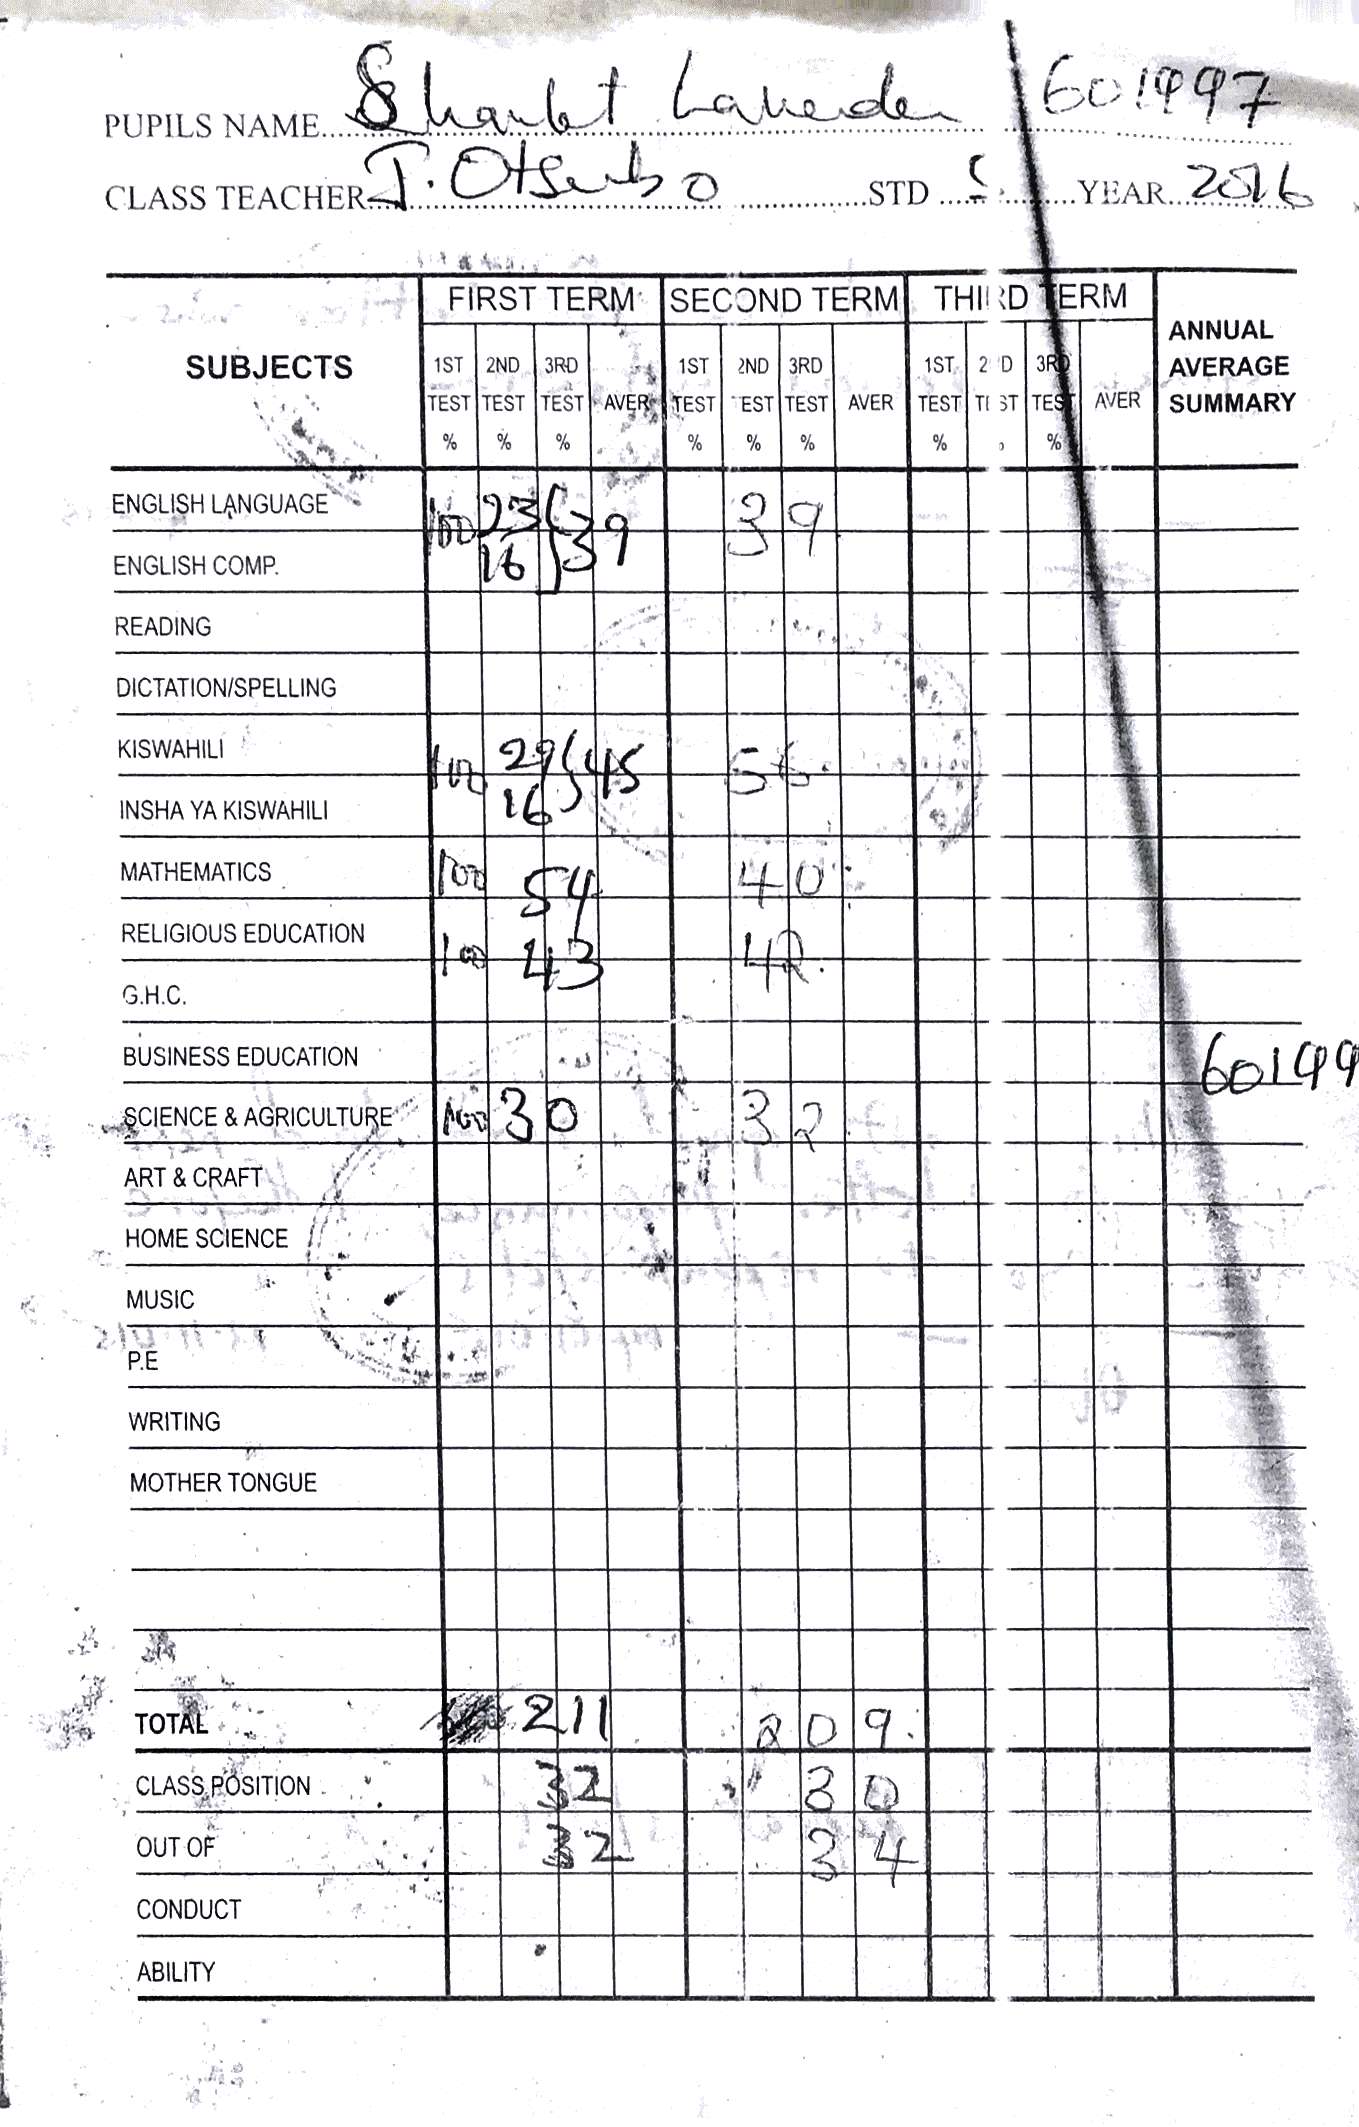 PUPILS NAME 601997
CLASS TEACHER J. STD 5 YEAR 2016
SUBJECTS FIRST TERM SECOND TERM THIRD TERM ANNUAL AVERAGE SUMMARY
1ST TEST % 2ND TEST % 3RD TEST % AVER 1ST TEST % 2ND TEST % 3RD TEST % AVER 1ST TEST % 2ND TEST % 3RD TEST % AVER
ENGLISH LANGUAGE 100 23 39 39
ENGLISH COMP. 16
READING
DICTATION/SPELLING
KISWAHILI 100 29 45 56
INSHA YA KISWAHILI 16
MATHEMATICS 100 54 40
RELIGIOUS EDUCATION 100 43 42
G.H.C.
BUSINESS EDUCATION 60199
SCIENCE & AGRICULTURE 100 30 32
ART & CRAFT
HOME SCIENCE
MUSIC
P.E
WRITING
MOTHER TONGUE
TOTAL 211 209
CLASS POSITION 32 30
OUT OF 32 34
CONDUCT
ABILITY